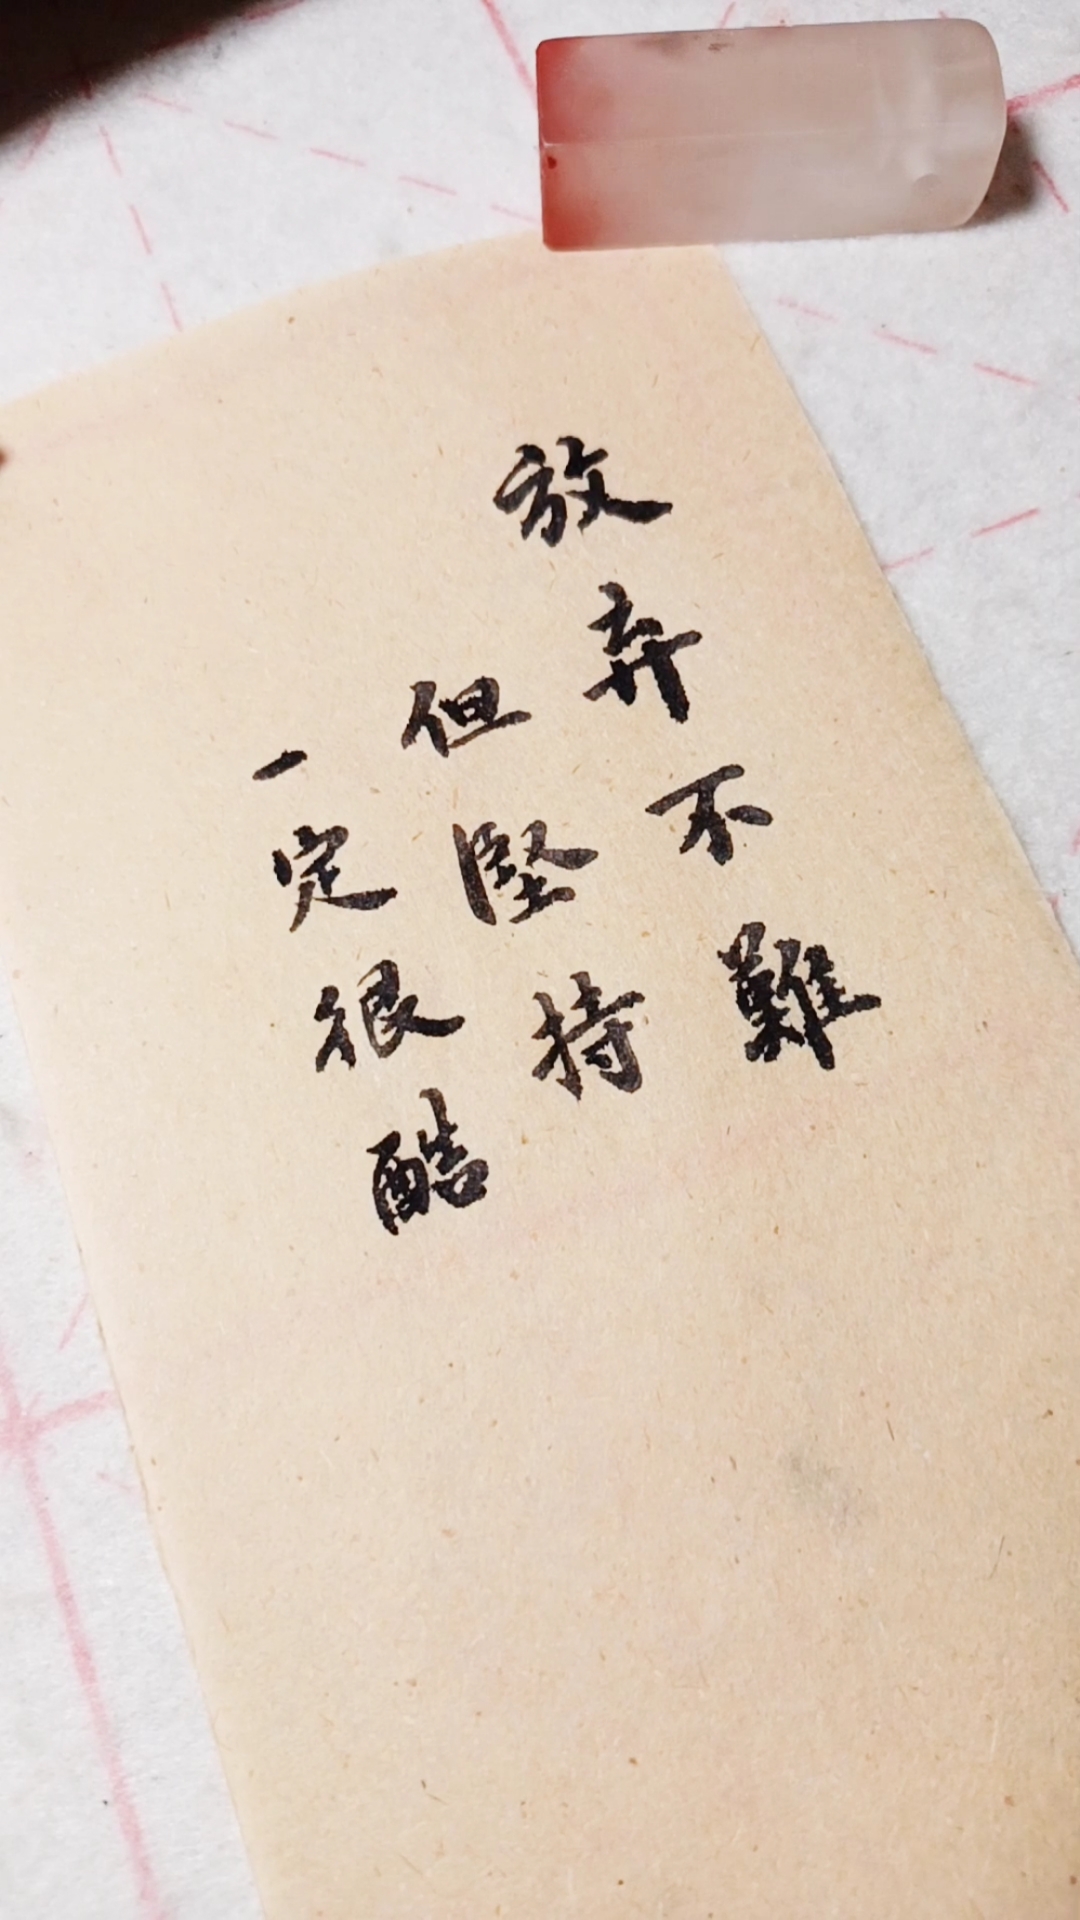 放弃不難
但堅持
一定很酷